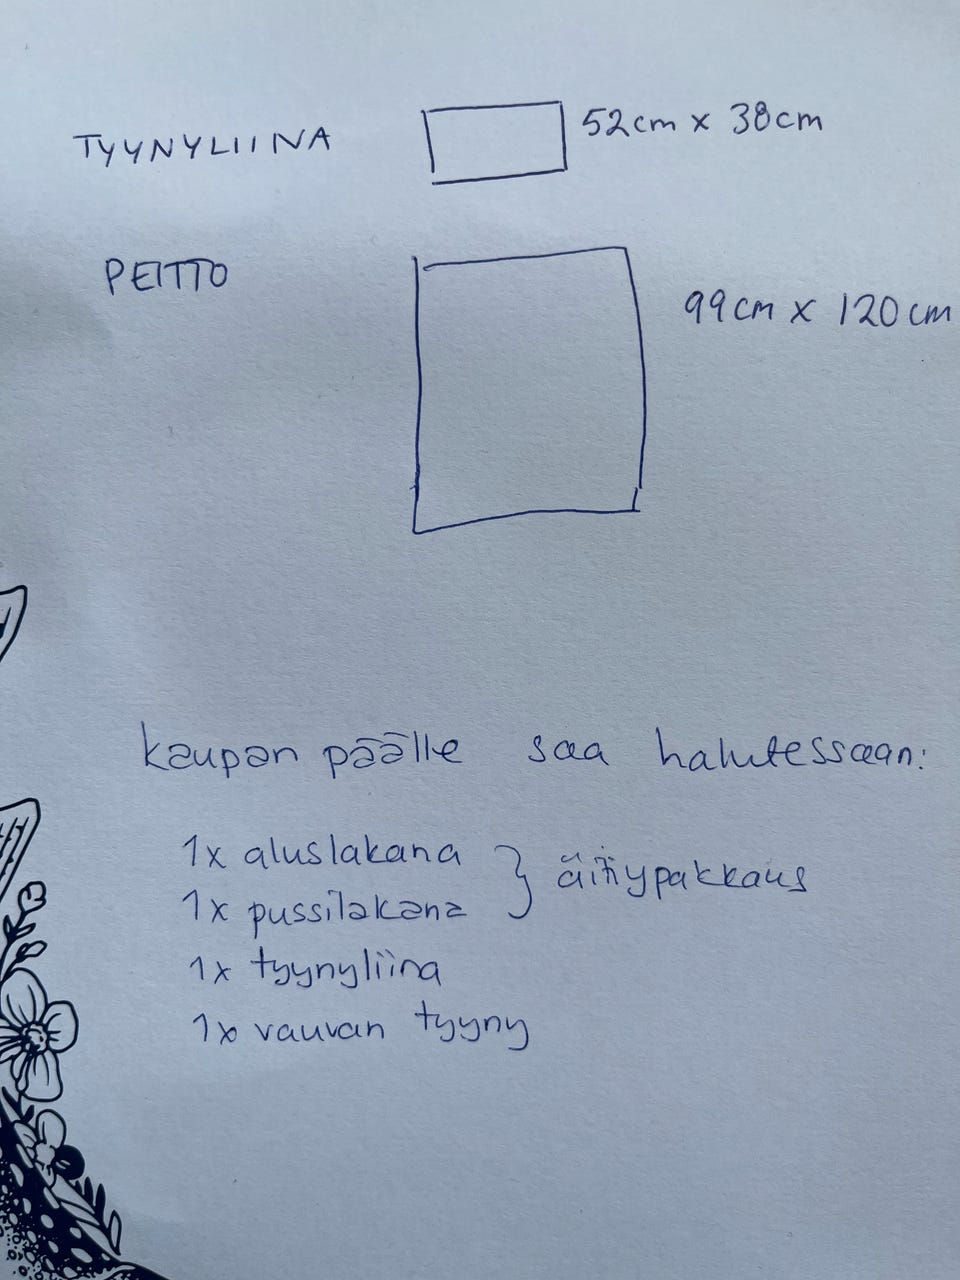 TYYNYLIINA 52cm x 38cm
PEITTO 99cm x 120cm
kaupan päälle saa halutessaan:
1x aluslakana } äitiypakkaus
1x pussilakana
1x tyynyliina
1x vauvan tyyny